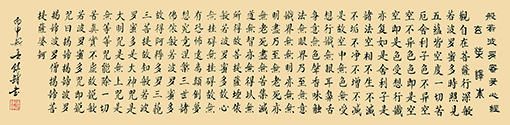 般若波羅蜜多心經
玄奘譯本
觀自在菩薩行深般
若波羅蜜多時照見
五蘊皆空度一切苦
厄舍利子色不異空
空不異色色即是空
空即是色受想行識
亦復如是舍利子是
諸法空相不生不滅
不垢不淨不增不減
是故空中無色無受
想行識無眼耳鼻舌
身意無色聲香味觸
法無眼界乃至無意
識界無無明亦無無
明盡乃至無老死亦
無老死盡無苦集滅
道無智亦無得以無
所得故菩提薩埵依
般若波羅蜜多故心
無罣礙無罣礙故無
有恐怖遠離顛倒夢
想究竟涅槃三世諸
佛依般若波羅蜜多
故得阿耨多羅三藐
三菩提故知般若波
羅蜜多是大神咒是
大明咒是無上咒是
無等等咒能除一切
苦真實不虛故說般
若波羅蜜多咒即說
咒曰揭諦揭諦波羅
揭諦波羅僧揭諦菩
提薩婆訶
丙申